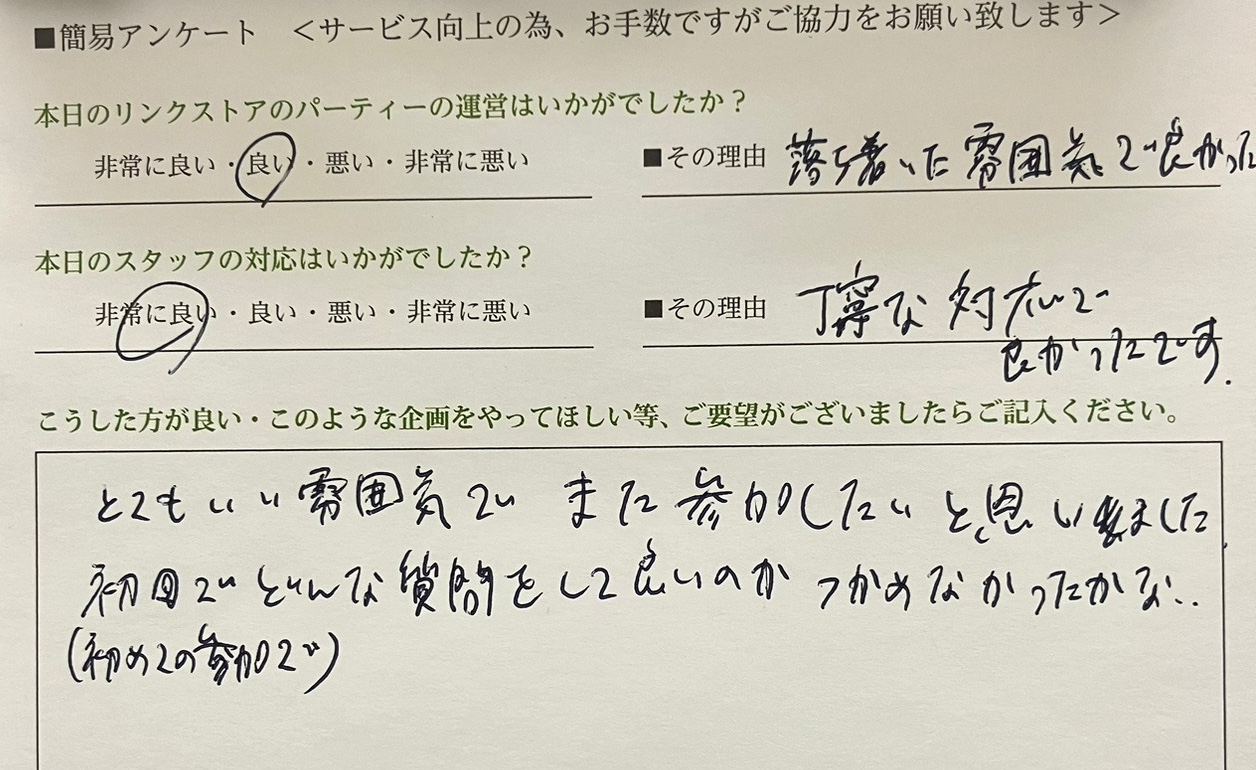 ■簡易アンケート ＜サービス向上の為、お手数ですがご協力をお願い致します＞
本日のリンクストアのパーティーの運営はいかがでしたか？
非常に良い・良い・悪い・非常に悪い ■その理由 落ち着いた雰囲気で良かった
本日のスタッフの対応はいかがでしたか？
非常に良い・良い・悪い・非常に悪い ■その理由 丁寧な対応で
良かったです.
こうした方が良い・このような企画をやってほしい等、ご要望がございましたらご記入ください。
とてもいい雰囲気で また参加したいと思いました.
初回でどんな質問をして良いのかつかめなかったかな..
(初めての参加で)